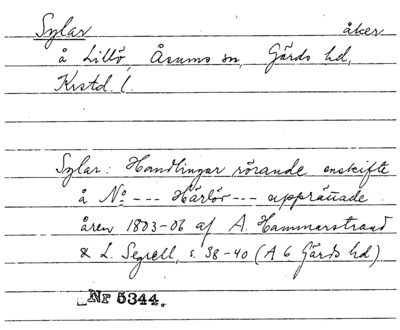 Sylar åker
å Lillö, Åsums sn, Gärds hd,
Krstd. l.
Sylar: Handlingar rörande enskifte
å No --- Härlöv --- upprättade
åren 1803-06 af A. Hammarstrand
& L. Segrell, s. 38-40 (A 6 Gärds hd)
Nr 5344.